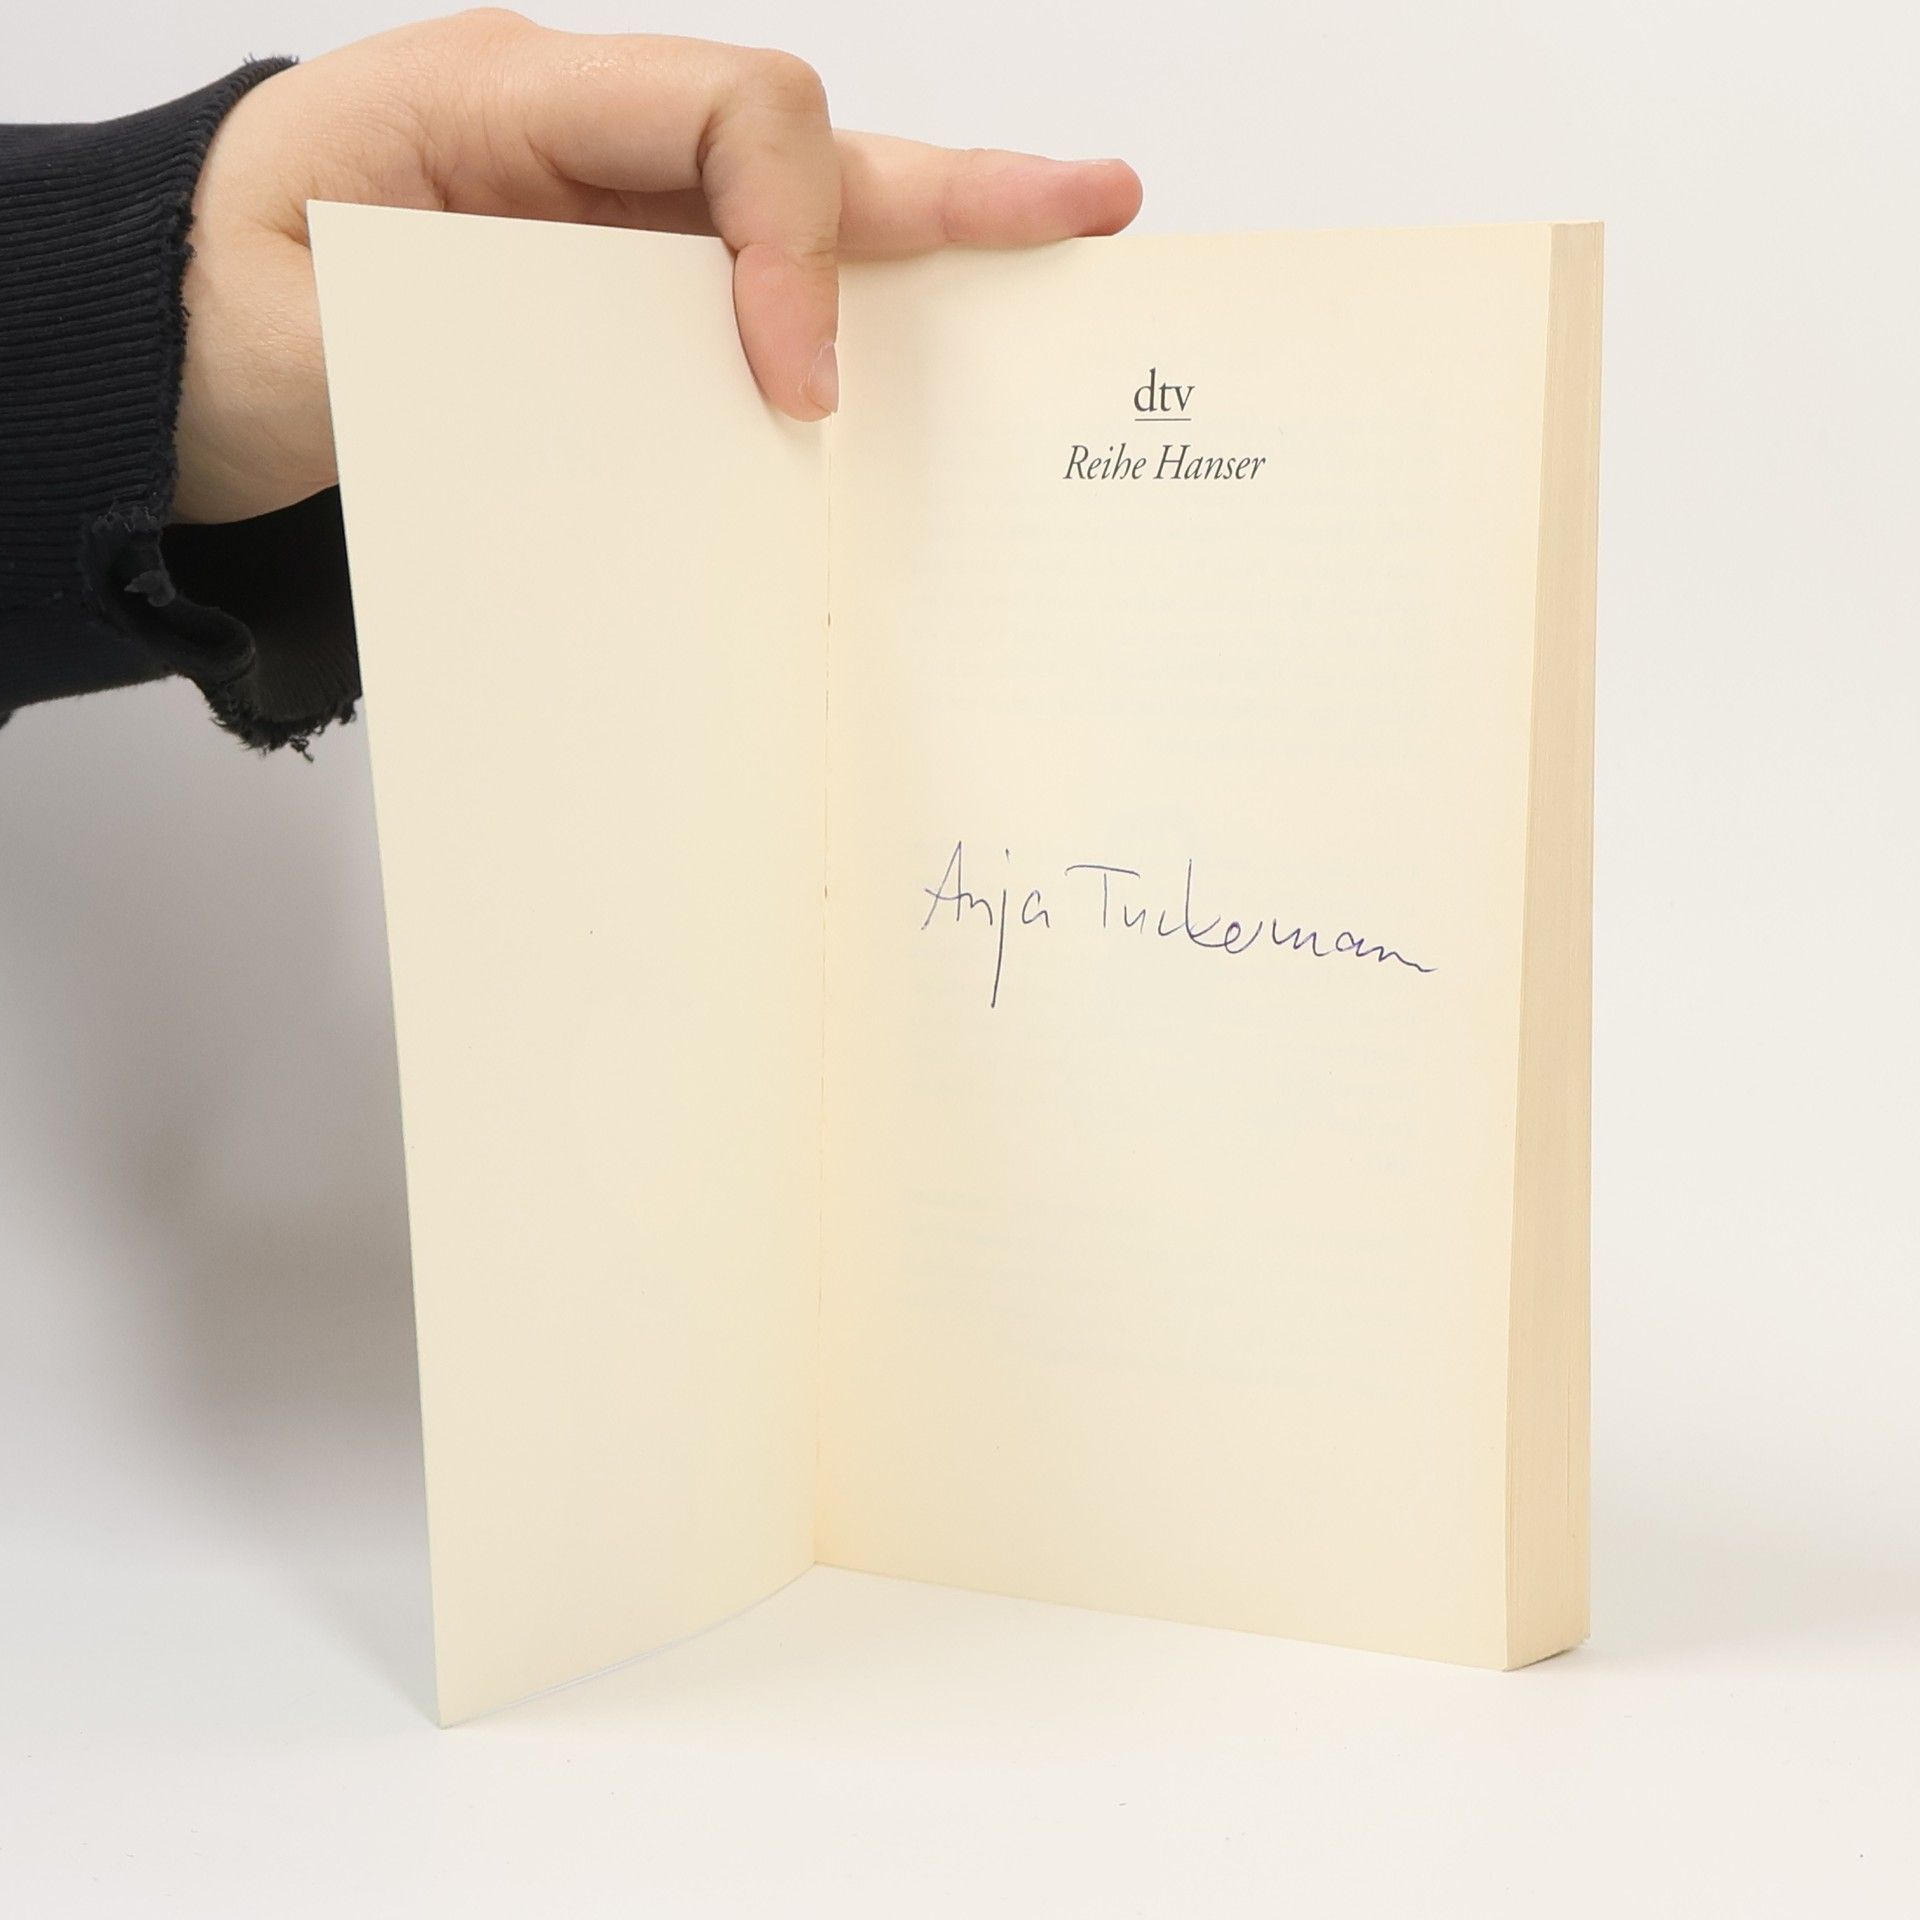 dtv
Reihe Hanser
Anja Tuckermann